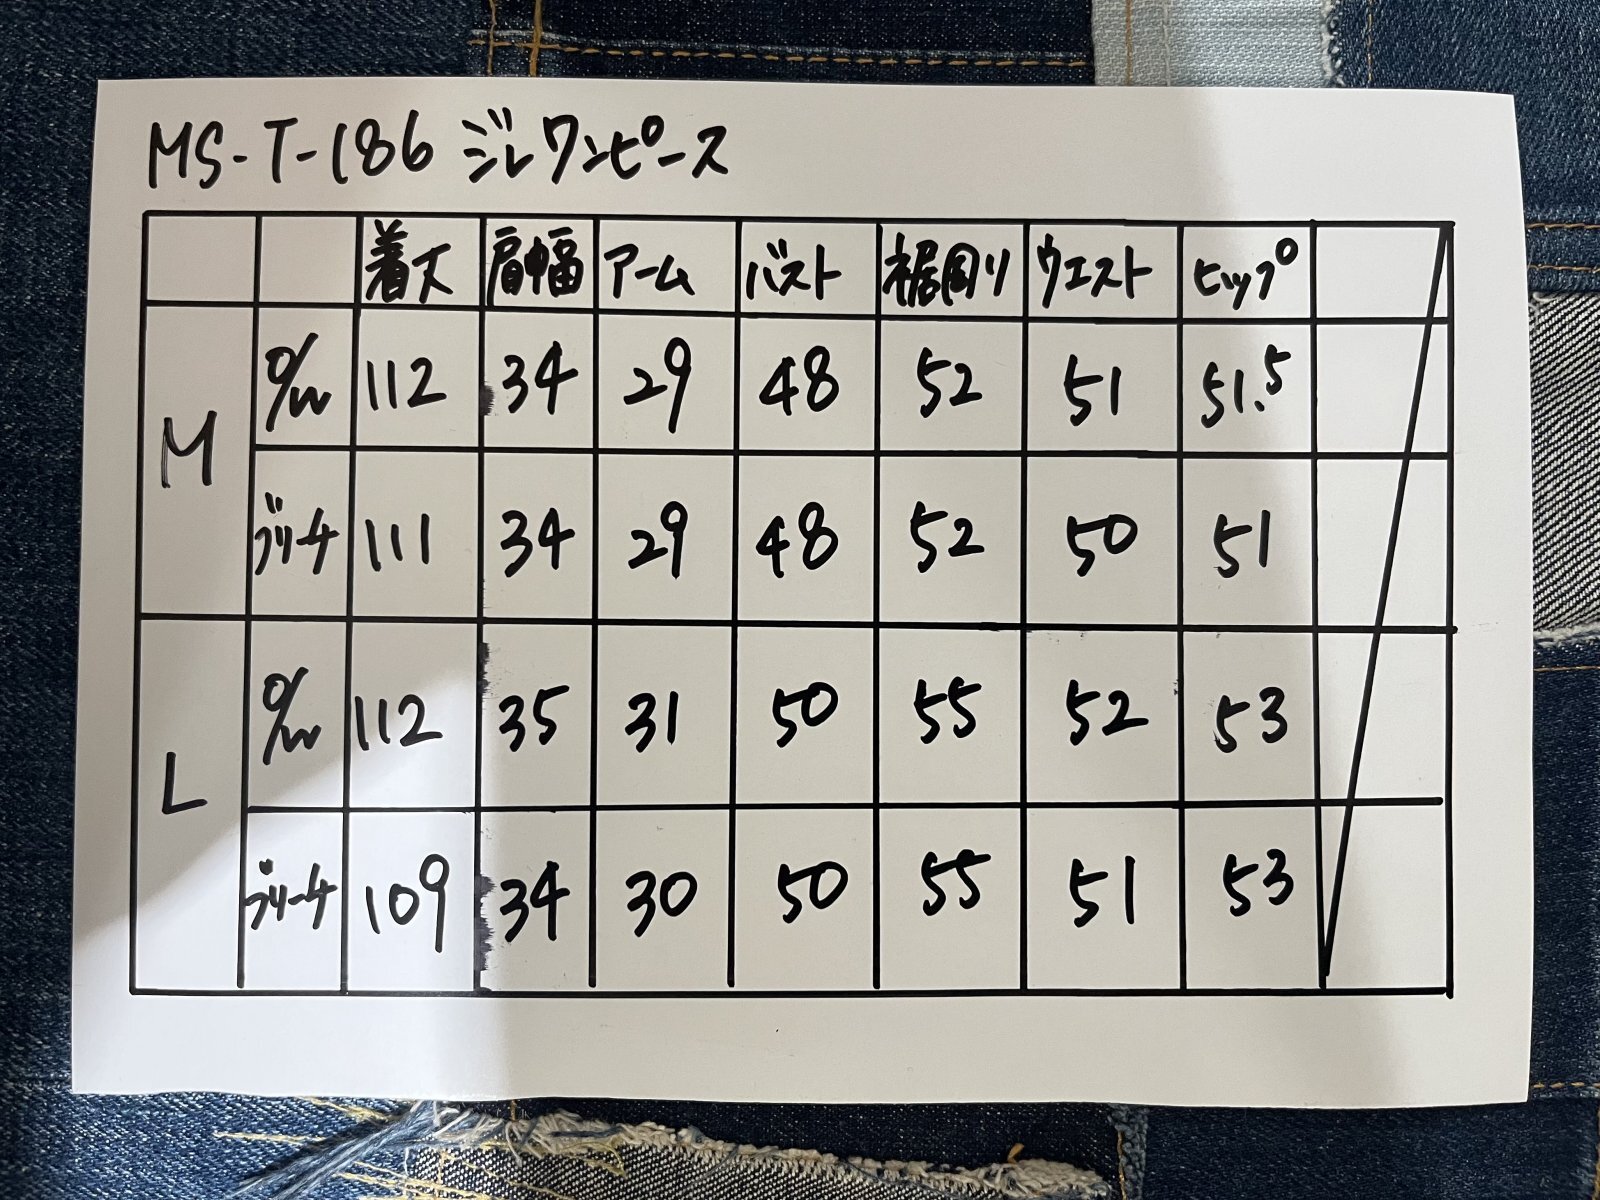 MS-T-186 ジレワンピース
着丈 肩幅 アーム バスト 裾周り ウエスト ヒップ
M
o/w 112 34 29 48 52 51 51.5
ブリーチ 111 34 29 48 52 50 51
L
o/w 112 35 31 50 55 52 53
ブリーチ 109 34 30 50 55 51 53